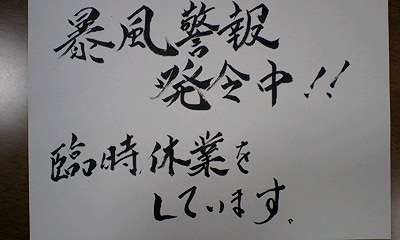 暴風警報
発令中!!
臨時休業を
しています。